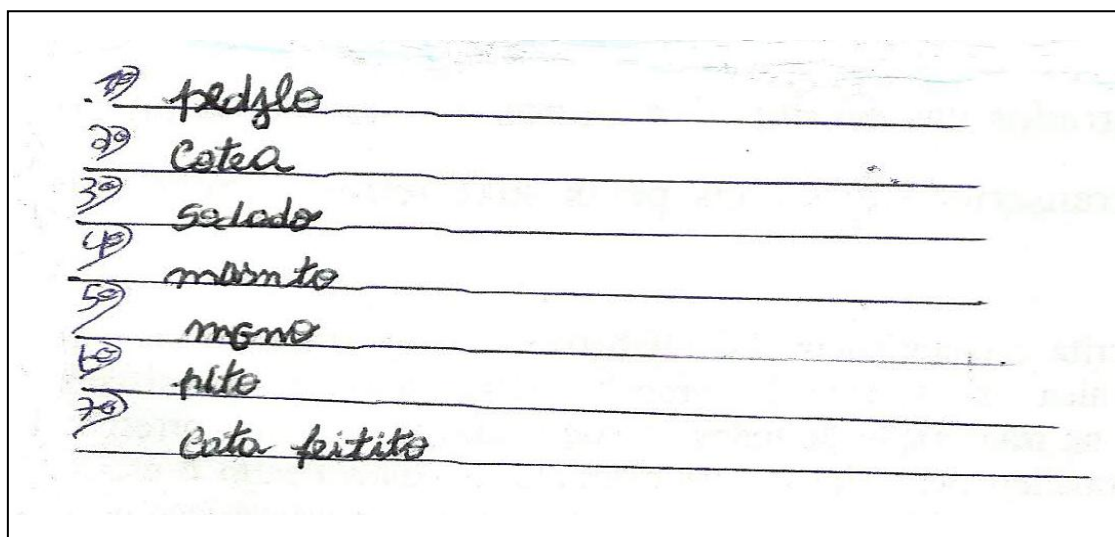 1º) pedylo
2º) Cotea
3º) sodado
4º) mosnto
5º) meno
6º) pito
7º) Cata feitito